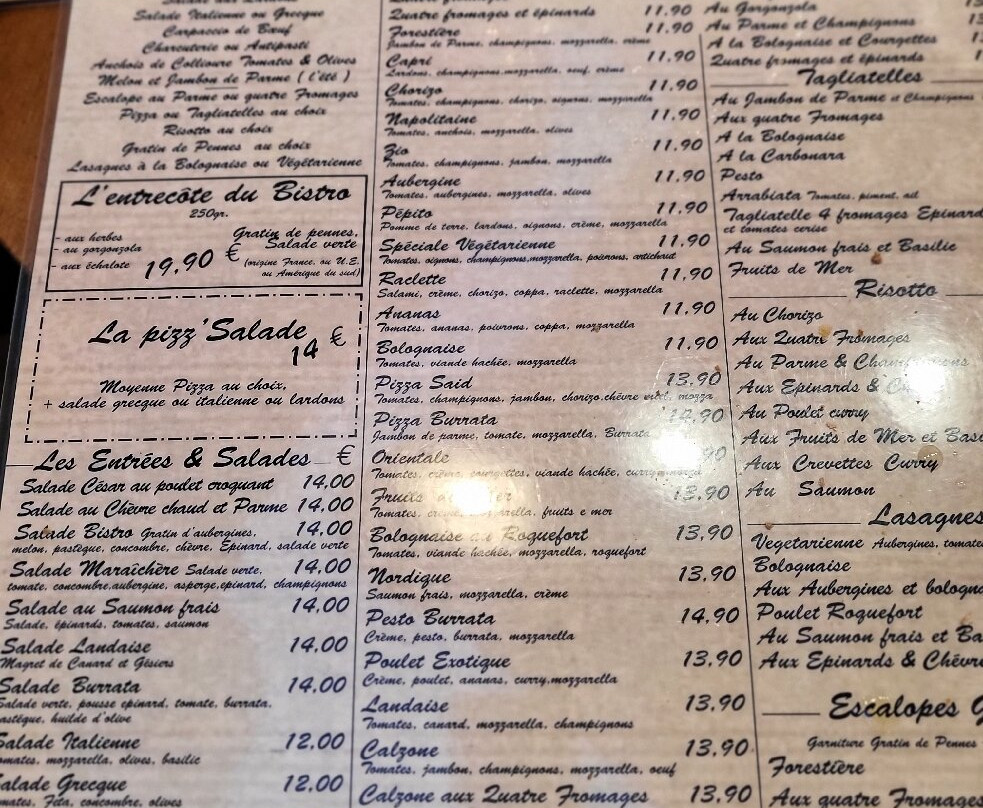 Salade Italienne ou Grecque
Carpaccio de Bœuf
Charcuterie ou Antipasti
Anchois de Collioure Tomates & Olives
Melon et Jambon de Parme ( l'été )
Escalope au Parme ou quatre Fromages
Pizza ou Tagliatelles au choix
Risotto au choix
Gratin de Pennes au choix
Lasagnes à la Bolognaise ou Végétarienne
L'entrecôte du Bistro
250gr.
- aux herbes
- au gorgonzola
- aux échalote
19,90 €
Gratin de pennes,
Salade verte
(origine France, ou U.E.
ou Amérique du sud)
La pizz'Salade
14 €
Moyenne Pizza au choix,
+ salade grecque ou italienne ou lardons
Les Entrées & Salades €
Salade César au poulet croquant 14,00
Salade au Chèvre chaud et Parme 14,00
Salade Bistro Gratin d'aubergines, 14,00
melon, pastèque, concombre, chèvre, Epinard, salade verte
Salade Maraîchère Salade verte, 14,00
tomate, concombre,aubergine, asperge,epinard, champignons
Salade au Saumon frais 14,00
Salade, épinards, tomates, saumon
Salade Landaise 14,00
Magret de Canard et Gésiers
Salade Burrata 14,00
Salade verte, pousse epinard, tomate, burrata,
pastèque, huilde d'olive
Salade Italienne 12,00
Tomates, mozzarella, olives, basilic
Salade Grecque 12,00
Tomates, Feta, concombre, olives
Quatre fromages et épinards 11.90
Forestière 11.90
Jambon de Parme, champignons, mozzarella, crème
Capri 11.90
Lardons, champignons,mozzarella, oeuf, crème
Chorizo 11.90
Tomates, champignons, chorizo, oignons, mozzarella
Napolitaine 11.90
Tomates, anchois, mozzarella, olives
Zio 11.90
Tomates, champignons, jambon, mozzarella
Aubergine 11.90
Tomates, aubergines, mozzarella, olives
Pépito 11.90
Pomme de terre, lardons, oignons, crème, mozzarella
Spéciale Végétarienne 11.90
Tomates, oignons, champignons,mozzarella, poivrons, artichaut
Raclette 11.90
Salami, crème, chorizo, coppa, raclette, mozzarella
Ananas 11.90
Tomates, ananas, poivrons, coppa, mozzarella
Bolognaise 11.90
Tomates, viande hachée, mozzarella
Pizza Said 13.90
Tomates, champignons, jambon, chorizo,chèvre miel, mozza
Pizza Burrata 14.90
Jambon de parme, tomate, mozzarella, Burrata
Orientale 90
Tomates, crème, courgettes, viande hachée,
Fruits de Mer 13.90
Tomates, crème, mozzarella, fruits e mer
Bolognaise au Roquefort 13,90
Tomates, viande hachée, mozzarella, roquefort
Nordique 13.90
Saumon frais, mozzarella, crème
Pesto Burrata 14.90
Crème, pesto, burrata, mozzarella
Poulet Exotique 13.90
Crème, poulet, ananas, curry,mozzarella
Landaise 13.90
Tomates, canard, mozzarella, champignons
Calzone 13.90
Tomates, jambon, champignons, mozzarella, oeuf
Calzone aux Quatre Fromages 13.90
Au Gorgonzola
Au Parme et Champignons
A la Bolognaise et Courgettes
Quatre fromages et épinards
Tagliatelles
Au Jambon de Parme et Champignons
Aux quatre Fromages
A la Bolognaise
A la Carbonara
Pesto
Arrabiata Tomates, piment, ail
Tagliatelle 4 fromages Epinard
et tomates cerise
Au Saumon frais et Basilic
Fruits de Mer
Risotto
Au Chorizo
Aux Quatre Fromages
Au Parme & Champignons
Aux Epinards &
Au Poulet curry
Aux Fruits de Mer et Basi
Aux Crevettes Curry
Au Saumon
Lasagnes
Vegetarienne Aubergines, tomates
Bolognaise
Aux Aubergines et bologna
Poulet Roquefort
Au Saumon frais et Ba
Aux Epinards & Chèvre
Escalopes
Garniture Gratin de Pennes
Forestière
Aux quatre Fromages